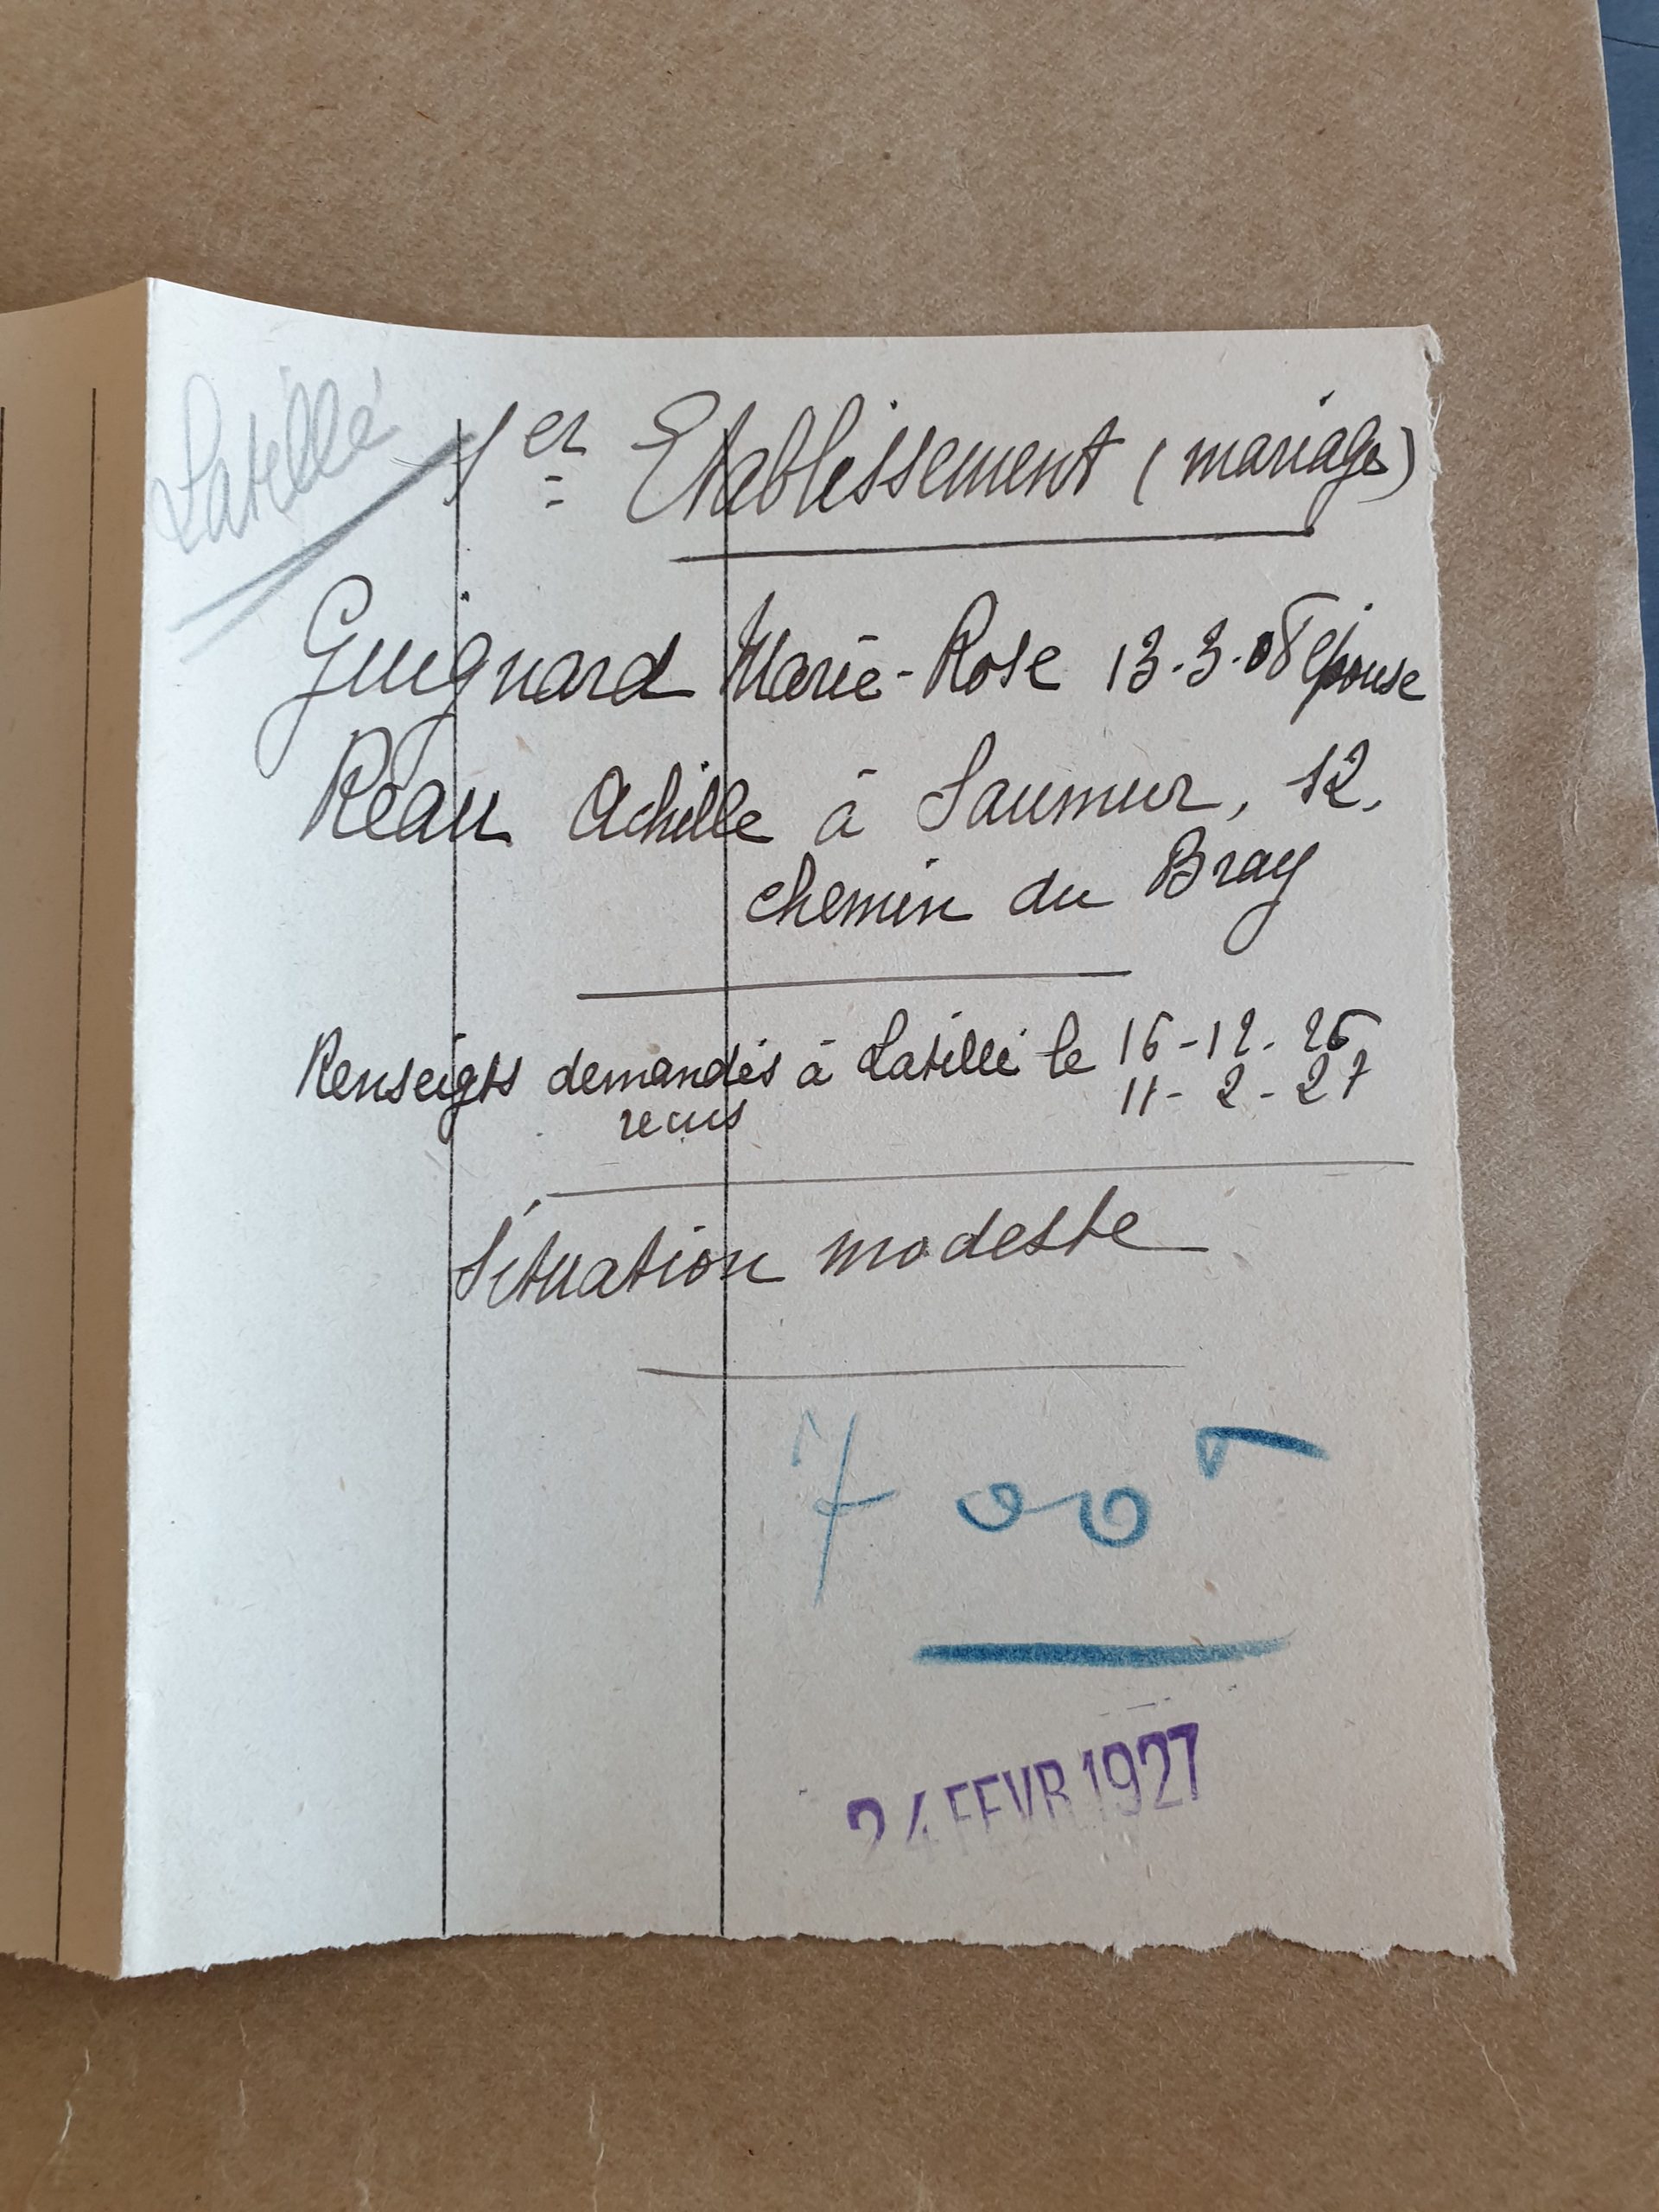 Latillé
1er Etablissement (mariage)
Guignard Marie-Rose 13.3.08 épouse
Réau Achille à Saumur, 12,
chemin du Bray
Renseigts demandés à Latillé le 16-12-26
recus 11-2-27
Situation modeste
700
24 FEVR 1927